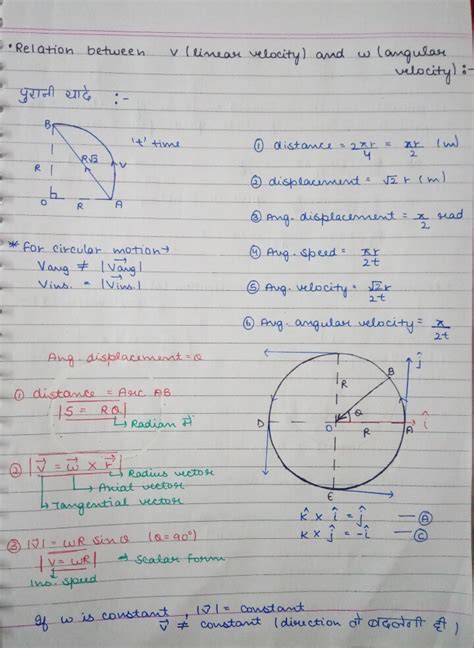 • Relation between v (linear velocity) and ω (angular
velocity) :-
पुरानी यादे :-
B
't' time
R√2
R
v
O
R
A
① distance = 2πr/4 = πr/2 (m)
② displacement = √2 r (m)
③ Ang. displacement = π/2 rad
④ Avg. speed = πr/2t
⑤ Avg. velocity = √2r/2t
⑥ Avg. angular velocity = π/2t
* For circular motion →
Vavg ≠ |V⃗avg|
Vins. = |V⃗ins.|
Ang. displacement = θ
① distance = Arc AB
|S = Rθ|
↳ Radian में
② |v⃗ = ω⃗ × r⃗|
↳ Radius vector
↳ Axial vector
↳ Tangential vector
③ |v⃗| = ωR sinθ (θ = 90°)
|v = ωR| → Scalar form
Ins. speed
ĵ
B
R
θ
D
O
R
A
î
E
k̂ × î = ĵ — Ⓐ
k̂ × ĵ = -î — Ⓒ
If ω is constant, |v⃗| = constant
v⃗ ≠ constant (direction तो बदलेगी ही)